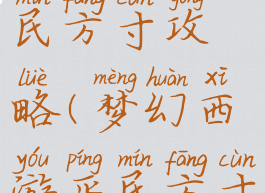 mín fāng cùn gōng
民方寸攻
lüè mèng huàn xī
略(梦幻西
yóu píng mín fāng cùn
游平民方寸